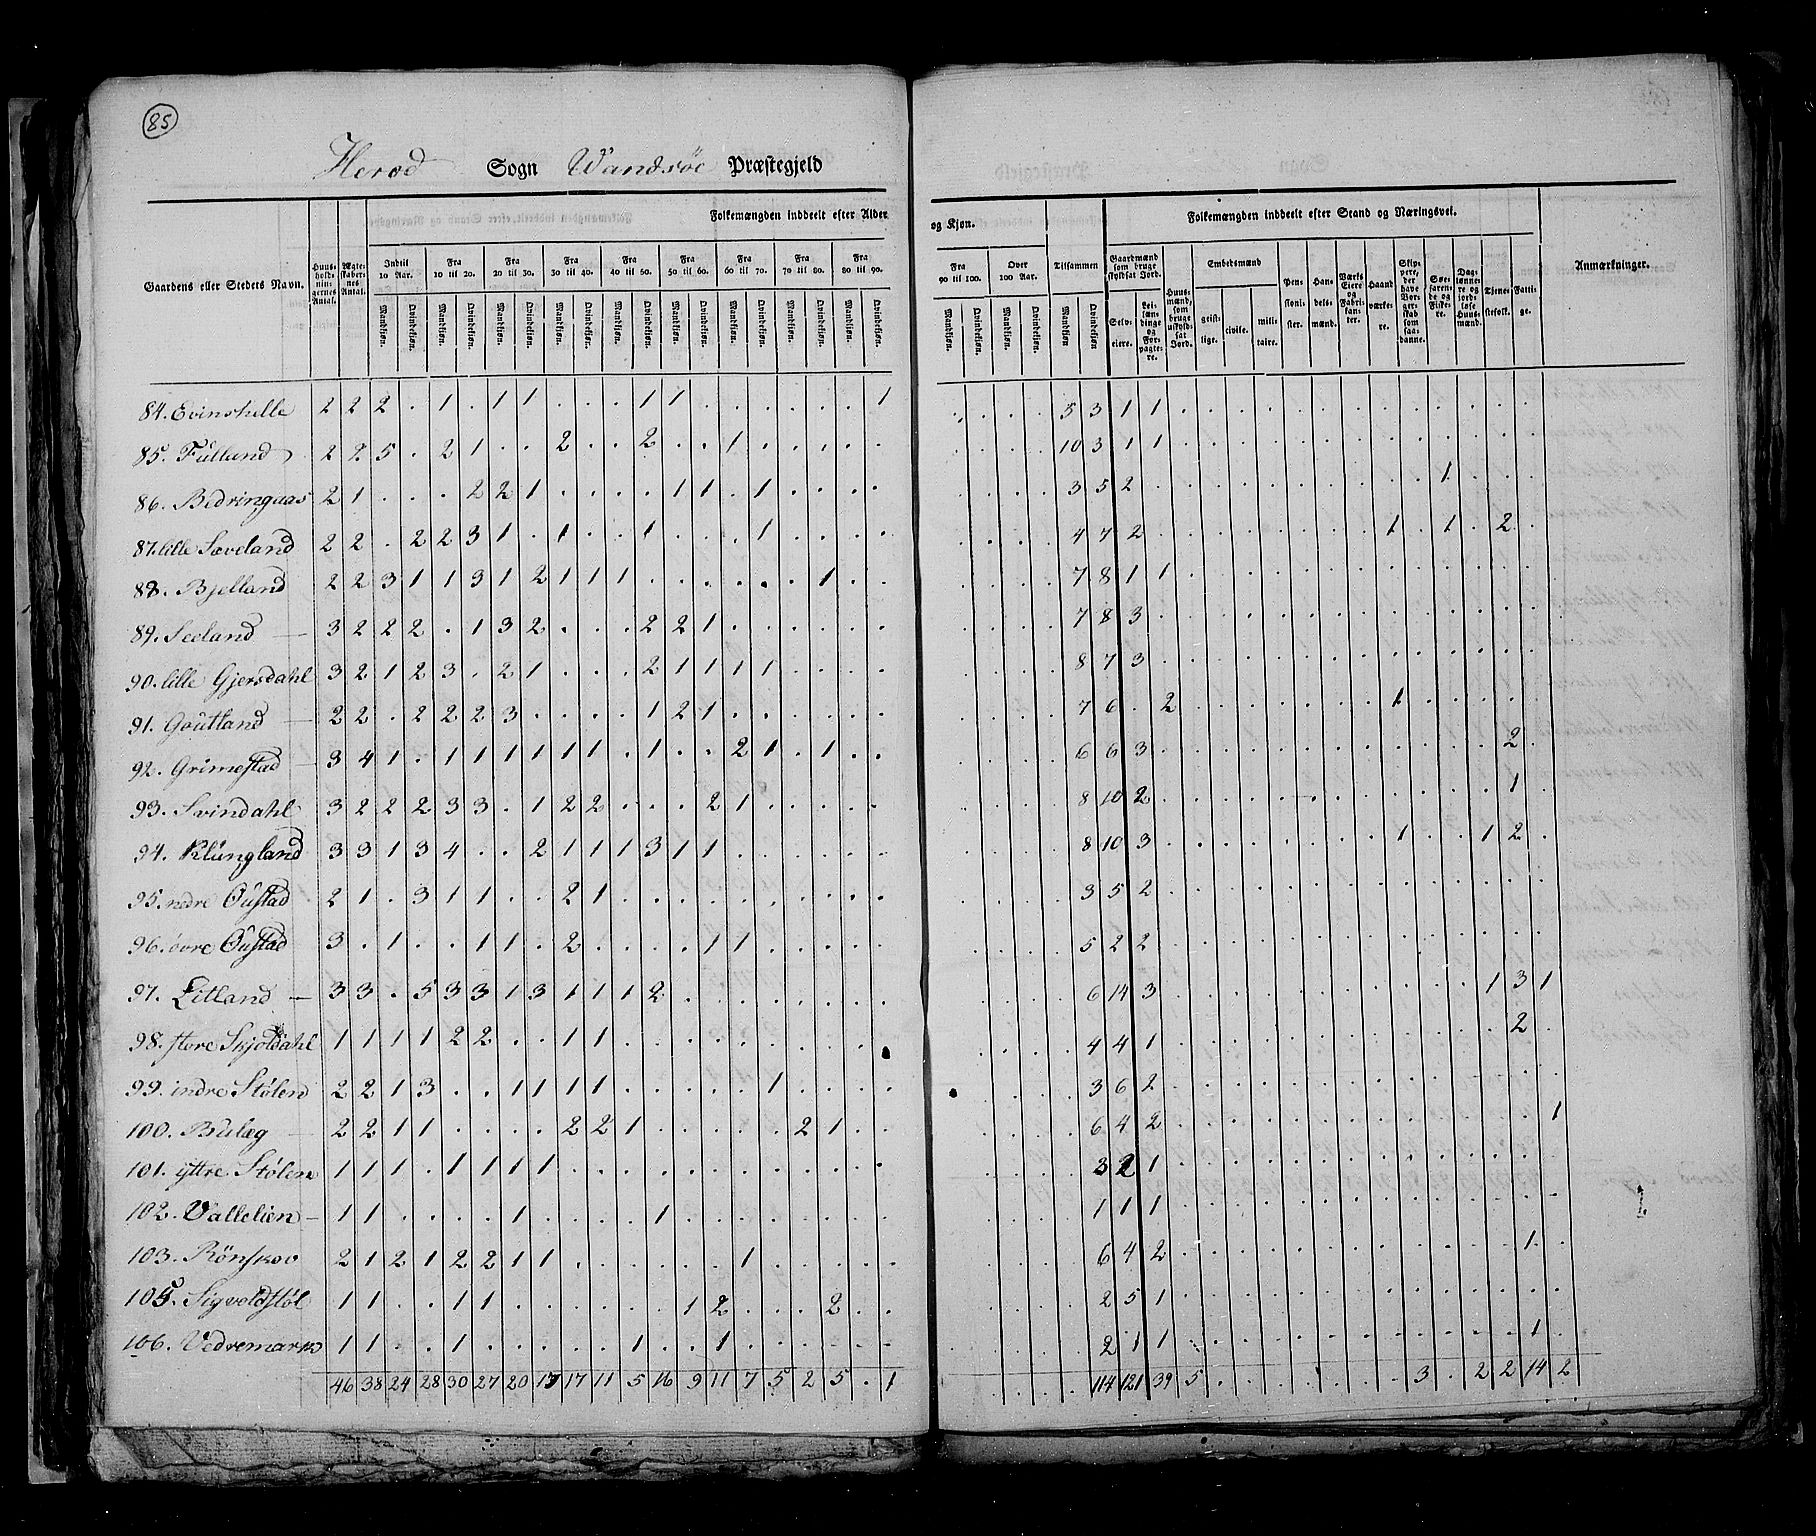 85
Herød Sogn Wandsöe Præstegjeld
Folkemængden inddeelt efter Alder og Kjøn. Folkemængden inddeelt efter Stand og Næringsvei.
Gaardens eller Stedets Navn. Huus-hold-nin-gernes Antal. Ægte-skaber-nes Antal. Indtil 10 Aar. Fra 10 til 20. Fra 20 til 30. Fra 30 til 40. Fra 40 til 50. Fra 50 til 60. Fra 60 til 70. Fra 70 til 80. Fra 80 til 90. Fra 90 til 100. Over 100 Aar. Tilsammen Gaardmænd som bruge skyldsat Jord. Huus-mænd, som bruge uskyld-sat Jord. Embedsmænd Pen-sioni-ster. Han-dels-mænd. Værks Eiere og Fabri-kan-ter. Haand værke-re. Skip-pere, der have Bor-ger-skab som saa-danne. Søe-faren-de og Fiske-re. Dag-lønne-re og jord-løse Huus-mænd. Tjene-stefolk. Fatti-ge. Anmærkninger.
Mandkjøn. Qvindekjøn. Mandkjøn. Qvindekjøn. Mandkjøn. Qvindekjøn. Mandkjøn. Qvindekjøn. Mandkjøn. Qvindekjøn. Mandkjøn. Qvindekjøn. Mandkjøn. Qvindekjøn. Mandkjøn. Qvindekjøn. Mandkjøn. Qvindekjøn. Mandkjøn. Qvindekjøn. Mandkjøn. Qvindekjøn. Mandkjøn Qvindekjøn. Selv-eiere. Lei-læn-dinge og For-pagte-re. geist-lige. civile. mili-taire.
84. Evinshelle 2 2 2 . 1 . 1 1 . . . 1 1 . . . . . . 1 . . . . 5 3 1 1
85. Fulland 2 2 5 . 2 1 . . 2 . . 2 . . 1 . . . . . . . . . 10 3 1 1
86. Bedringaas 2 1 . . . 2 2 1 . . . . 1 1 . 1 . . . . . . . . 3 5 2 . 1
87. lille Sæveland 2 2 . 2 2 3 1 . 1 . . 1 . . . 1 . . . . . . . . 4 7 2 . 1 . 1 . 2 .
88. Bjelland 2 2 3 1 1 3 1 2 1 1 1 . . . . . . 1 . . . . . . 7 8 1 1
89. Seeland 3 2 2 2 . 1 3 2 . . . 2 2 1 . . . . . . . . . . 7 8 3
90. lille Gjersdahl 3 2 1 2 3 . 2 1 . . . 2 1 1 1 1 . . . . . . . . 8 7 3
91. Goutland 2 2 . 2 2 2 3 . . . . 1 2 1 . . . . . . . . . . 7 6 . 2 . 1
92. Grimestad 3 4 1 . 1 1 1 1 1 1 . 1 . . 2 1 . 1 . . . . . . 6 6 3 . 2 .
93. Svindahl 3 2 2 2 3 3 . 1 2 2 . . . 2 1 . . . . . . . . 8 10 2 . 1 .
94. Klungland 3 3 1 3 4 . . 2 1 1 1 3 1 1 . . . . . . . . . . 8 10 3 . 1 . . 1 2 .
95. nedre Oustad 2 1 . 3 1 1 . . 2 1 . . . . . . . . . . . . . . 3 5 2
96. övre Oustad 3 . 1 . . 1 1 . 2 . . . . 1 1 . . . . . . . . . 5 2 2
97. Litland 3 3 . 5 3 3 1 3 1 1 1 2 . . . . . . . . . . . . 6 14 3 . 1 3 1
98. store Skjoldahl 1 1 1 1 2 2 . . 1 1 . . . . . . . . . . . . . . 4 4 1 . 2 .
99. indre Stølen 2 2 1 3 . . 1 1 1 1 . . . . . 1 . . . . . . . . 3 6 2
100. Bulæg 2 2 1 1 . . . . 2 2 1 . . . . . 2 1 . . . . . . 6 4 2 . 1
101. yttre Stølen 1 1 1 . 1 1 1 1 . . . . . . . . . . . . . . . 3 2 1
102. Vallelien 1 1 . . . . 1 . . . . 1 . . . . . . . . . . . . 1 1 1
103. Rönskov 2 1 2 1 2 2 1 1 . . . . . . 1 . . . . . . . . . 6 4 2 . 1 .
105. Sigvoldstöl 1 1 . . 1 1 . . . . . . 1 2 . . . 2 . . . . . . 2 5 1
106. Vedremark 1 1 . . 1 . . . . . 1 . . 1 . . . . . . . . . . 2 1 1 . 1 .
46 38 24 28 30 27 20 17 17 11 5 16 9 11 7 5 2 5 . 1 . . . . 114 121 39 5 . . . . . . . . 3 . 2 2 14 2